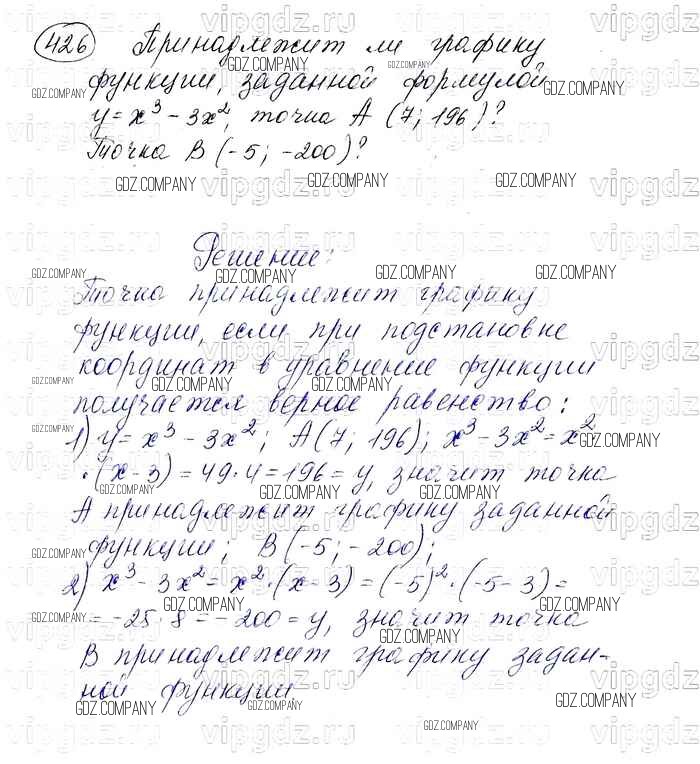 426 Принадлежит ли графику
функции, заданной формулой
y = x³ - 3x², точка A (7; 196)?
Точка B (-5; -200)?
Решение:
Точка принадлежит графику
функции, если при подстановке
координат в уравнение функции
получается верное равенство:
1) y = x³ - 3x²; A(7; 196); x³ - 3x² = x² ·
· (x - 3) = 49 · 4 = 196 = y, значит точка
A принадлежит графику заданной
функции; B(-5; -200);
2) x³ - 3x² = x² · (x - 3) = (-5)² · (-5 - 3) =
= -25 · 8 = -200 = y, значит точка
B принадлежит графику задан-
ной функции
GDZ.COMPANY
vipgdz.ru